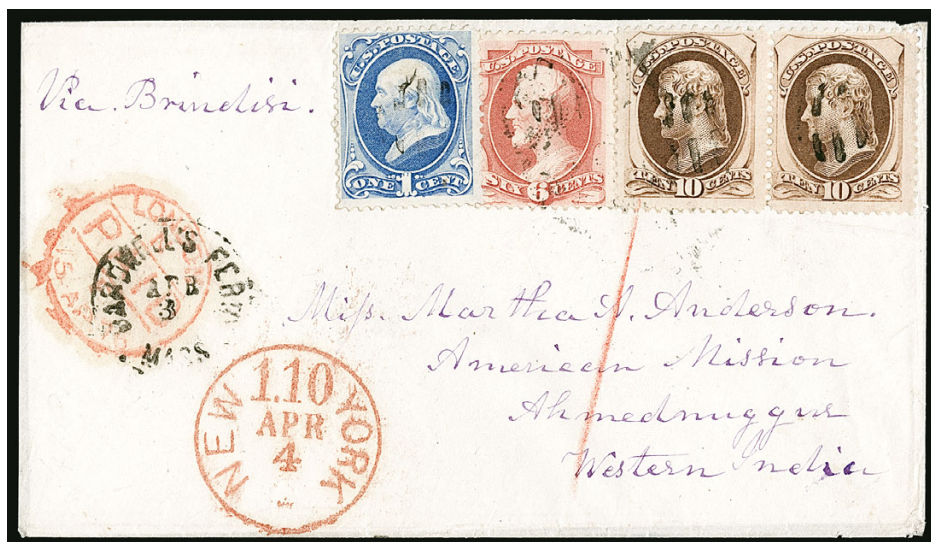 Via Brindisi.
U.S. POSTAGE
ONE 1 CENT
U.S. POSTAGE
SIX 6 CENTS
U.S. POSTAGE
TEN 10 CENTS
U.S. POSTAGE
TEN 10 CENTS
LONDON
PAID
15 AP
BARDWELL'S FERRY
APR
3
MASS
NEW YORK
1.10
APR
4
Miss. Martha A. Anderson.
American Mission
Ahmednuggur
Western India